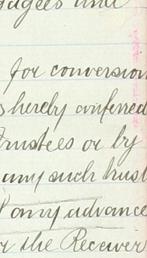 for conversion
hereby conferred
trustees or by
any such trust
any advance
the Receiver